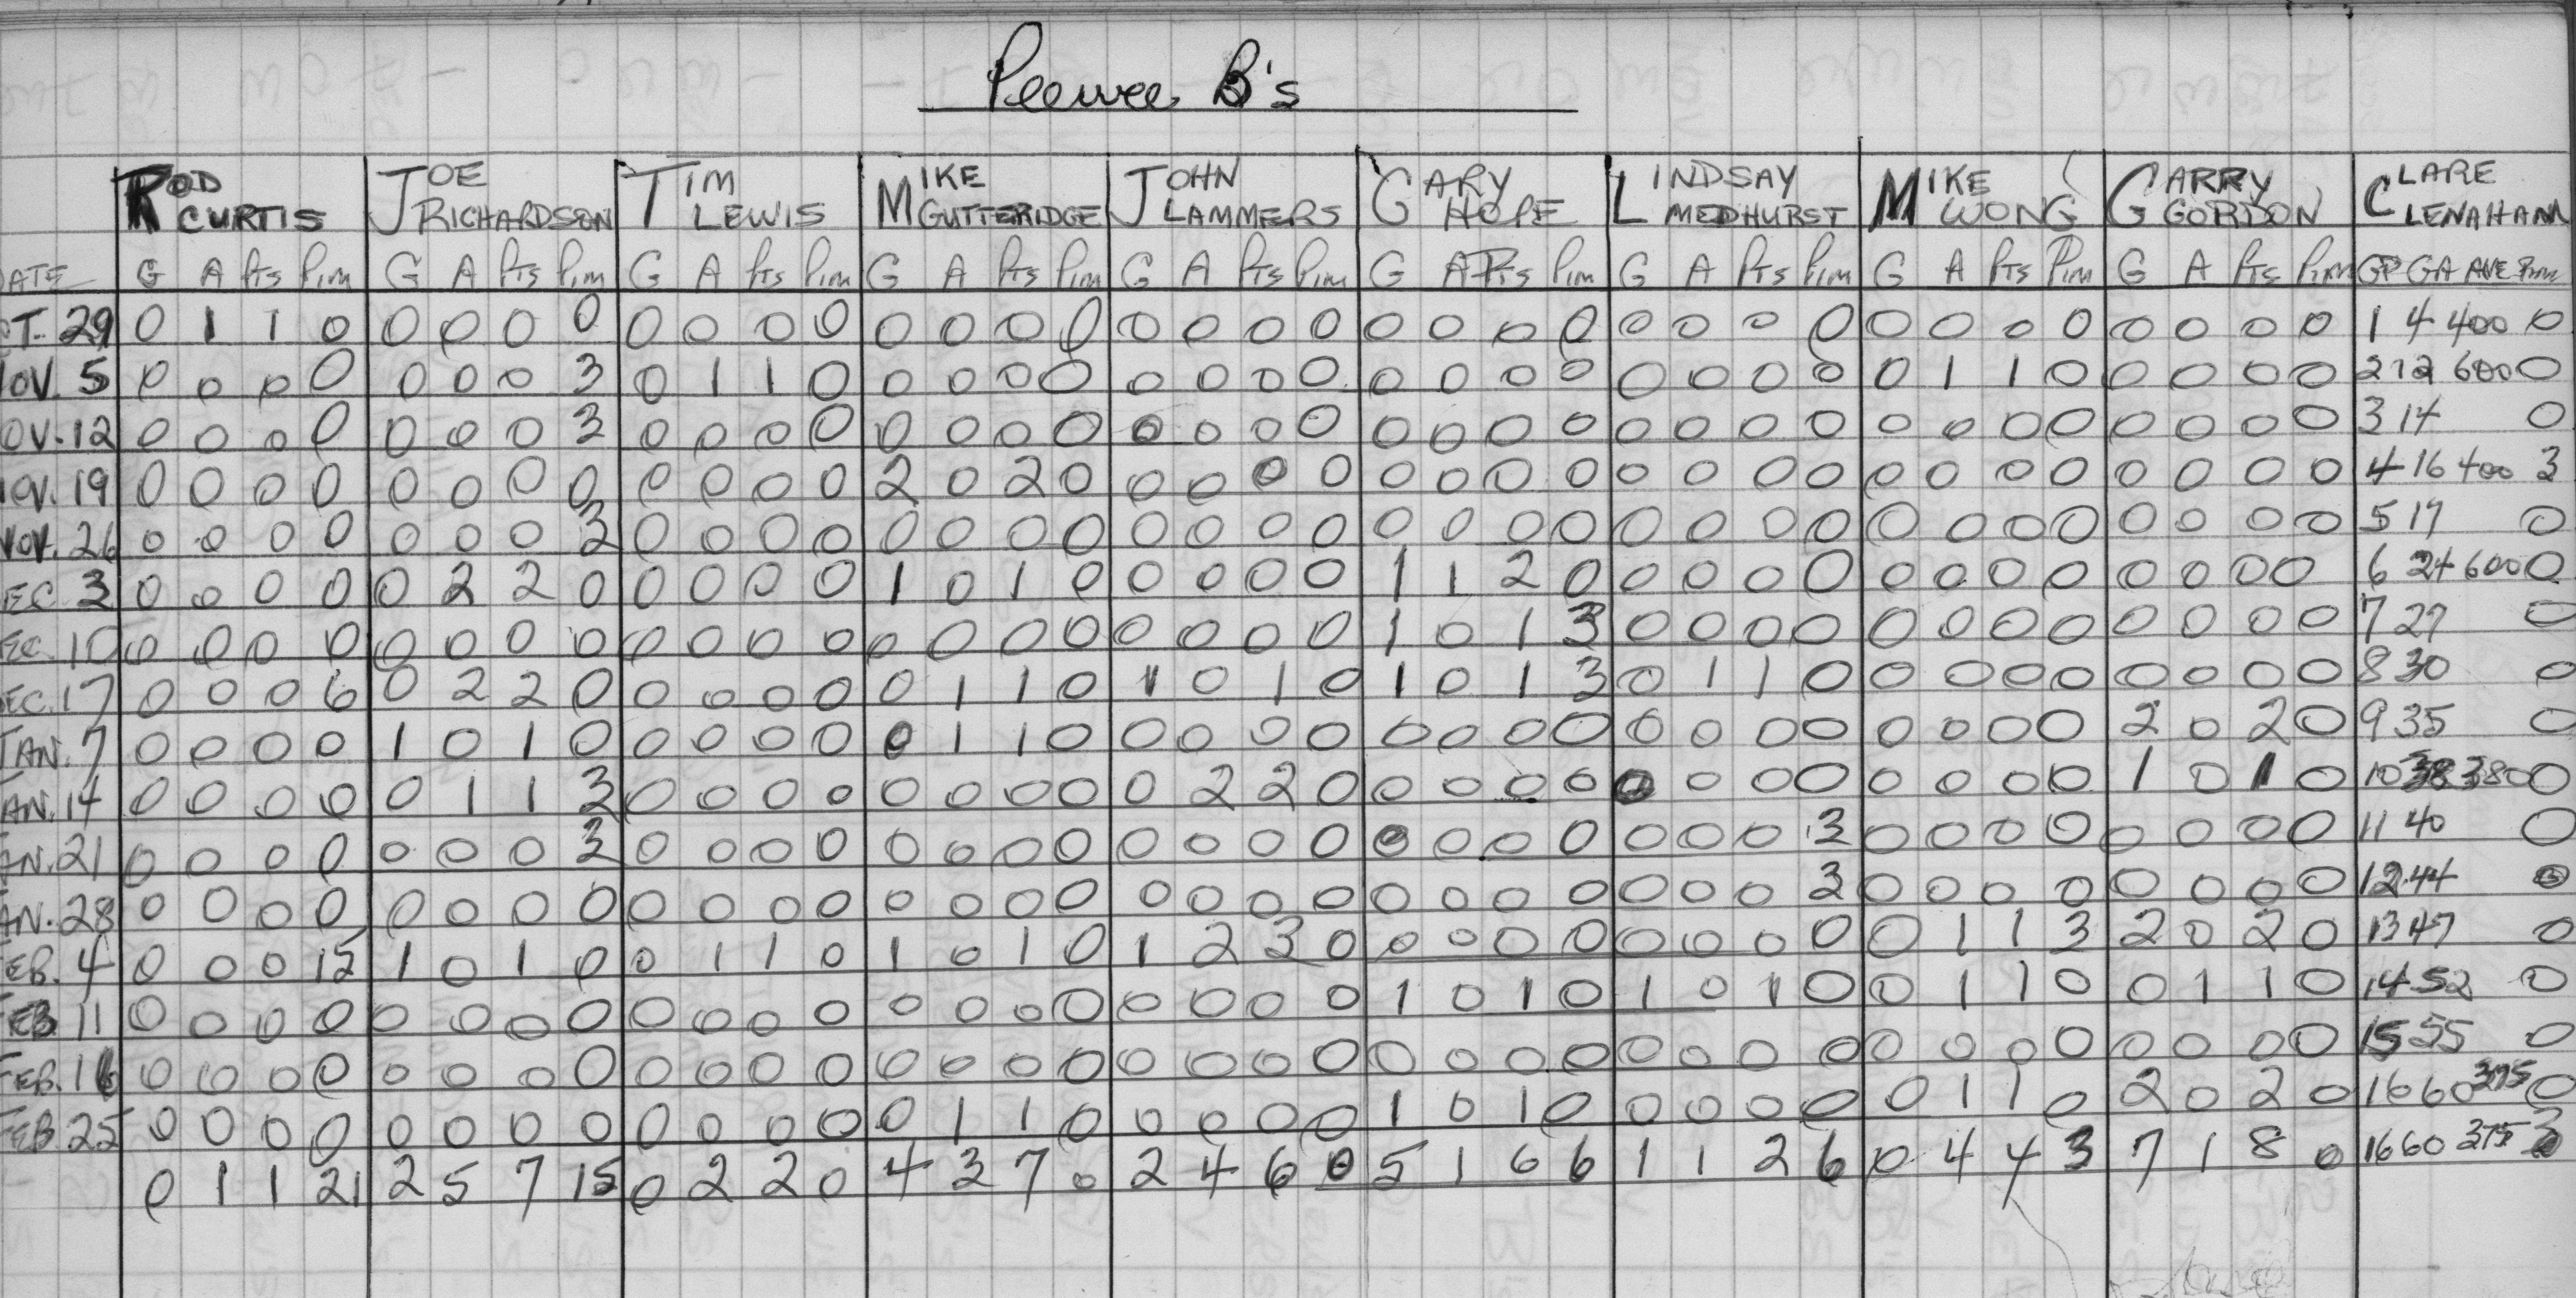 Peewee B's
ROD CURTIS JOE RICHARDSON TIM LEWIS MIKE GUTTERIDGE JOHN LAMMERS GARY HOPE LINDSAY MEDHURST MIKE WONG GARRY GORDON CLARE CLENAHAN
DATE G A Pts Pim G A Pts Pim G A Pts Pim G A Pts Pim G A Pts Pim G A Pts Pim G A Pts Pim G A Pts Pim G A Pts Pim GP GA AVE Pim
CT. 29 0 1 1 0 0 0 0 0 0 0 0 0 0 0 0 0 0 0 0 0 0 0 0 0 0 0 0 0 0 0 0 0 0 0 0 0 1 4 400 0
NOV. 5 0 0 0 0 0 0 0 3 0 1 1 0 0 0 0 0 0 0 0 0 0 0 0 0 0 0 0 0 0 1 1 0 0 0 0 0 2 12 600 0
OV. 12 0 0 0 0 0 0 0 3 0 0 0 0 0 0 0 0 0 0 0 0 0 0 0 0 0 0 0 0 0 0 0 0 0 0 0 0 3 14 0
NOV. 19 0 0 0 0 0 0 0 0 0 0 0 0 2 0 2 0 0 0 0 0 0 0 0 0 0 0 0 0 0 0 0 0 0 0 0 0 4 16 400 3
NOV. 26 0 0 0 0 0 0 0 3 0 0 0 0 0 0 0 0 0 0 0 0 0 0 0 0 0 0 0 0 0 0 0 0 0 0 0 0 5 17 0
EC. 3 0 0 0 0 0 2 2 0 0 0 0 0 1 0 1 0 0 0 0 0 1 1 2 0 0 0 0 0 0 0 0 0 0 0 0 0 6 24 600 0
EC. 10 0 0 0 0 0 0 0 0 0 0 0 0 0 0 0 0 0 0 0 0 1 0 1 3 0 0 0 0 0 0 0 0 0 0 0 0 7 27 0
EC. 17 0 0 0 6 0 2 2 0 0 0 0 0 0 1 1 0 1 0 1 0 1 0 1 3 0 1 1 0 0 0 0 0 0 0 0 0 8 30 0
JAN. 7 0 0 0 0 1 0 1 0 0 0 0 0 0 1 1 0 0 0 0 0 0 0 0 0 0 0 0 0 0 0 0 0 2 0 2 0 9 35 0
AN. 14 0 0 0 0 0 1 1 3 0 0 0 0 0 0 0 0 0 2 2 0 0 0 0 0 0 0 0 0 0 0 0 0 1 0 1 0 10 38 380 0
AN. 21 0 0 0 0 0 0 0 3 0 0 0 0 0 0 0 0 0 0 0 0 0 0 0 0 0 0 0 3 0 0 0 0 0 0 0 0 11 40 0
AN. 28 0 0 0 0 0 0 0 0 0 0 0 0 0 0 0 0 0 0 0 0 0 0 0 0 0 0 0 3 0 0 0 0 0 0 0 0 12 44 0
FEB. 4 0 0 0 15 1 0 1 0 0 1 1 0 1 0 1 0 1 2 3 0 0 0 0 0 0 0 0 0 0 1 1 3 2 0 2 0 13 47 0
FEB 11 0 0 0 0 0 0 0 0 0 0 0 0 0 0 0 0 0 0 0 0 1 0 1 0 1 0 1 0 0 1 1 0 0 1 1 0 14 52 0
FEB. 16 0 0 0 0 0 0 0 0 0 0 0 0 0 0 0 0 0 0 0 0 0 0 0 0 0 0 0 0 0 0 0 0 0 0 0 0 15 55 0
FEB 25 0 0 0 0 0 0 0 0 0 0 0 0 0 1 1 0 0 0 0 0 1 0 1 0 0 0 0 0 0 1 1 0 2 0 2 0 16 60 375 0
0 1 1 21 2 5 7 15 0 2 2 0 4 3 7 0 2 4 6 0 5 1 6 6 1 1 2 6 0 4 4 3 7 1 8 0 16 60 375 3